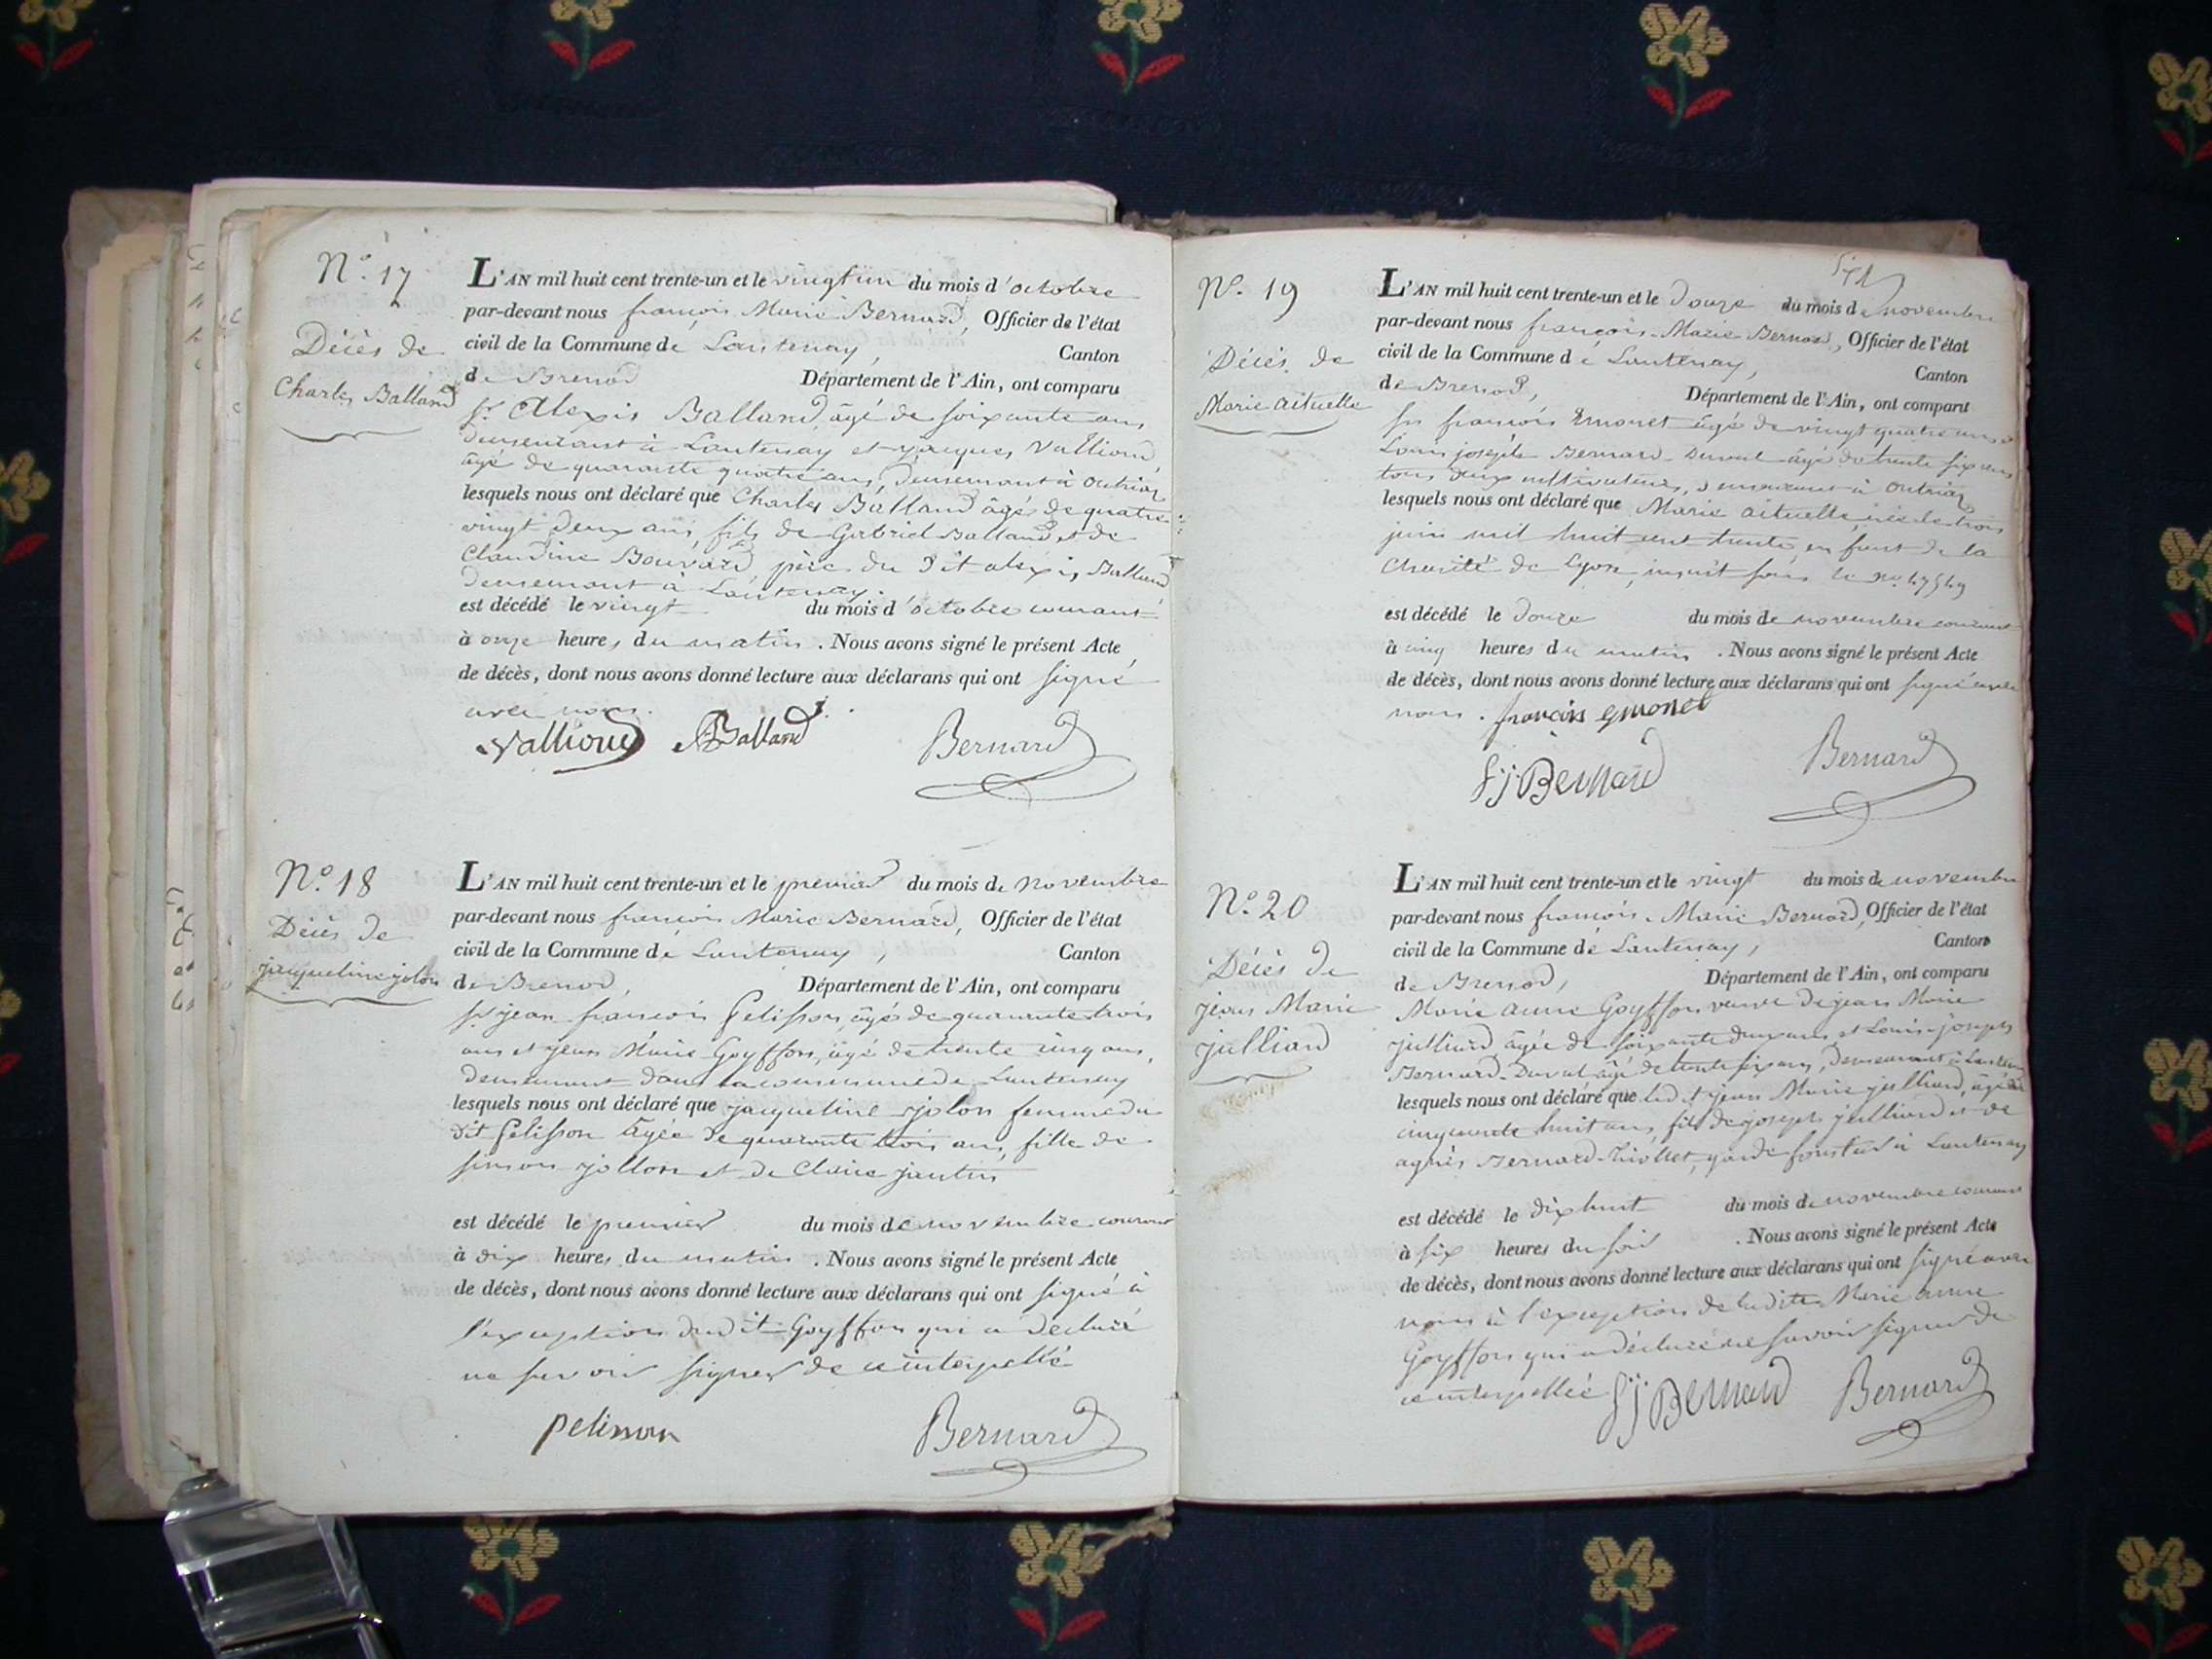 N.° 17
Décès de
Charles Balland
L'AN mil huit cent trente-un et le vingt un du mois d'octobre
par-devant nous françois Marie Bernard, Officier de l'état
civil de la Commune de Lantenay, Canton
de Brenod Département de l'Ain, ont comparu
sr. Alexis Balland, âgé de soixante ans,
demeurant à Lantenay et jacques Valliond,
âgé de quarante quatre ans, demeurant à outriaz
lesquels nous ont déclaré que Charles Balland âgé de quatre
vingt deux ans, fils de Gabriel Balland et de
Claudine Bouvard père du dit alexis Balland
demeurant à Lantenay.
est décédé le vingt du mois d'octobre courant
à onze heures du matin. Nous avons signé le présent Acte
de décès, dont nous avons donné lecture aux déclarans qui ont signé
avec nous.
Valliond ABalland Bernard
N.° 18
Décès de
jacqueline jolon
L'AN mil huit cent trente-un et le premier du mois de novembre
par-devant nous françois Marie Bernard, Officier de l'état
civil de la Commune de Lantenay, Canton
de Brenod, Département de l'Ain, ont comparu
sr. jean françois Pelisson, âgé de quarante trois
ans et jean Marie Goyffon, âgé de trente cinq ans,
demeurant dans la commune de Lantenay
lesquels nous ont déclaré que jacqueline jolon femme du
dit Pelisson âgée de quarante trois ans, fille de
simon jollon et de Claire jantin
est décédé le premier du mois de novembre courant
à dix heures du matin. Nous avons signé le présent Acte
de décès, dont nous avons donné lecture aux déclarans qui ont signé à
l'exception dudit Goyffon qui a déclaré
ne savoir signer de ce interpellé
pelisson Bernard
N.° 19
Décès de
Marie aituelle
L'AN mil huit cent trente-un et le douze du mois de novembre
par-devant nous françois Marie Bernard, Officier de l'état
civil de la Commune de Lantenay, Canton
de Brenod, Département de l'Ain, ont comparu
srs françois Emonet âgé de vingt quatre ans et
Louis joseph Bernard-Duval âgé de trente six ans
tous deux cultivateurs, demeurant à outriaz
lesquels nous ont déclaré que Marie aituelle née le trois
juin mil huit cent trente, enfant de la
Charité de Lyon, inscrit sous le no. 47549
est décédé le douze du mois de novembre courant
à cinq heures du matin. Nous avons signé le présent Acte
de décès, dont nous avons donné lecture aux déclarans qui ont signé avec
nous. françois emonet
Bernard Bernard
N.° 20
Décès de
jean Marie
julliard
L'AN mil huit cent trente-un et le vingt du mois de novembre
par-devant nous françois Marie Bernard, Officier de l'état
civil de la Commune de Lantenay, Canton
de Brenod, Département de l'Ain, ont comparu
Marie anne Goyffon veuve de jean Marie
julliard âgée de soixante deux ans, et Louis joseph
Bernard-Duval âgé de trente six ans, demeurant à Lantenay
lesquels nous ont déclaré que led.t jean Marie julliard, âgé de
cinquante huit ans, fils de joseph julliard et de
agnès Bernard-, garde forestier à Lantenay
est décédé le dix huit du mois de novembre courant
à six heures du soir. Nous avons signé le présent Acte
de décès, dont nous avons donné lecture aux déclarans qui ont signé avec
nous à l'exception de ladite Marie anne
Goyffon qui a déclaré ne savoir signer de
ce interpellée Bernard Bernard